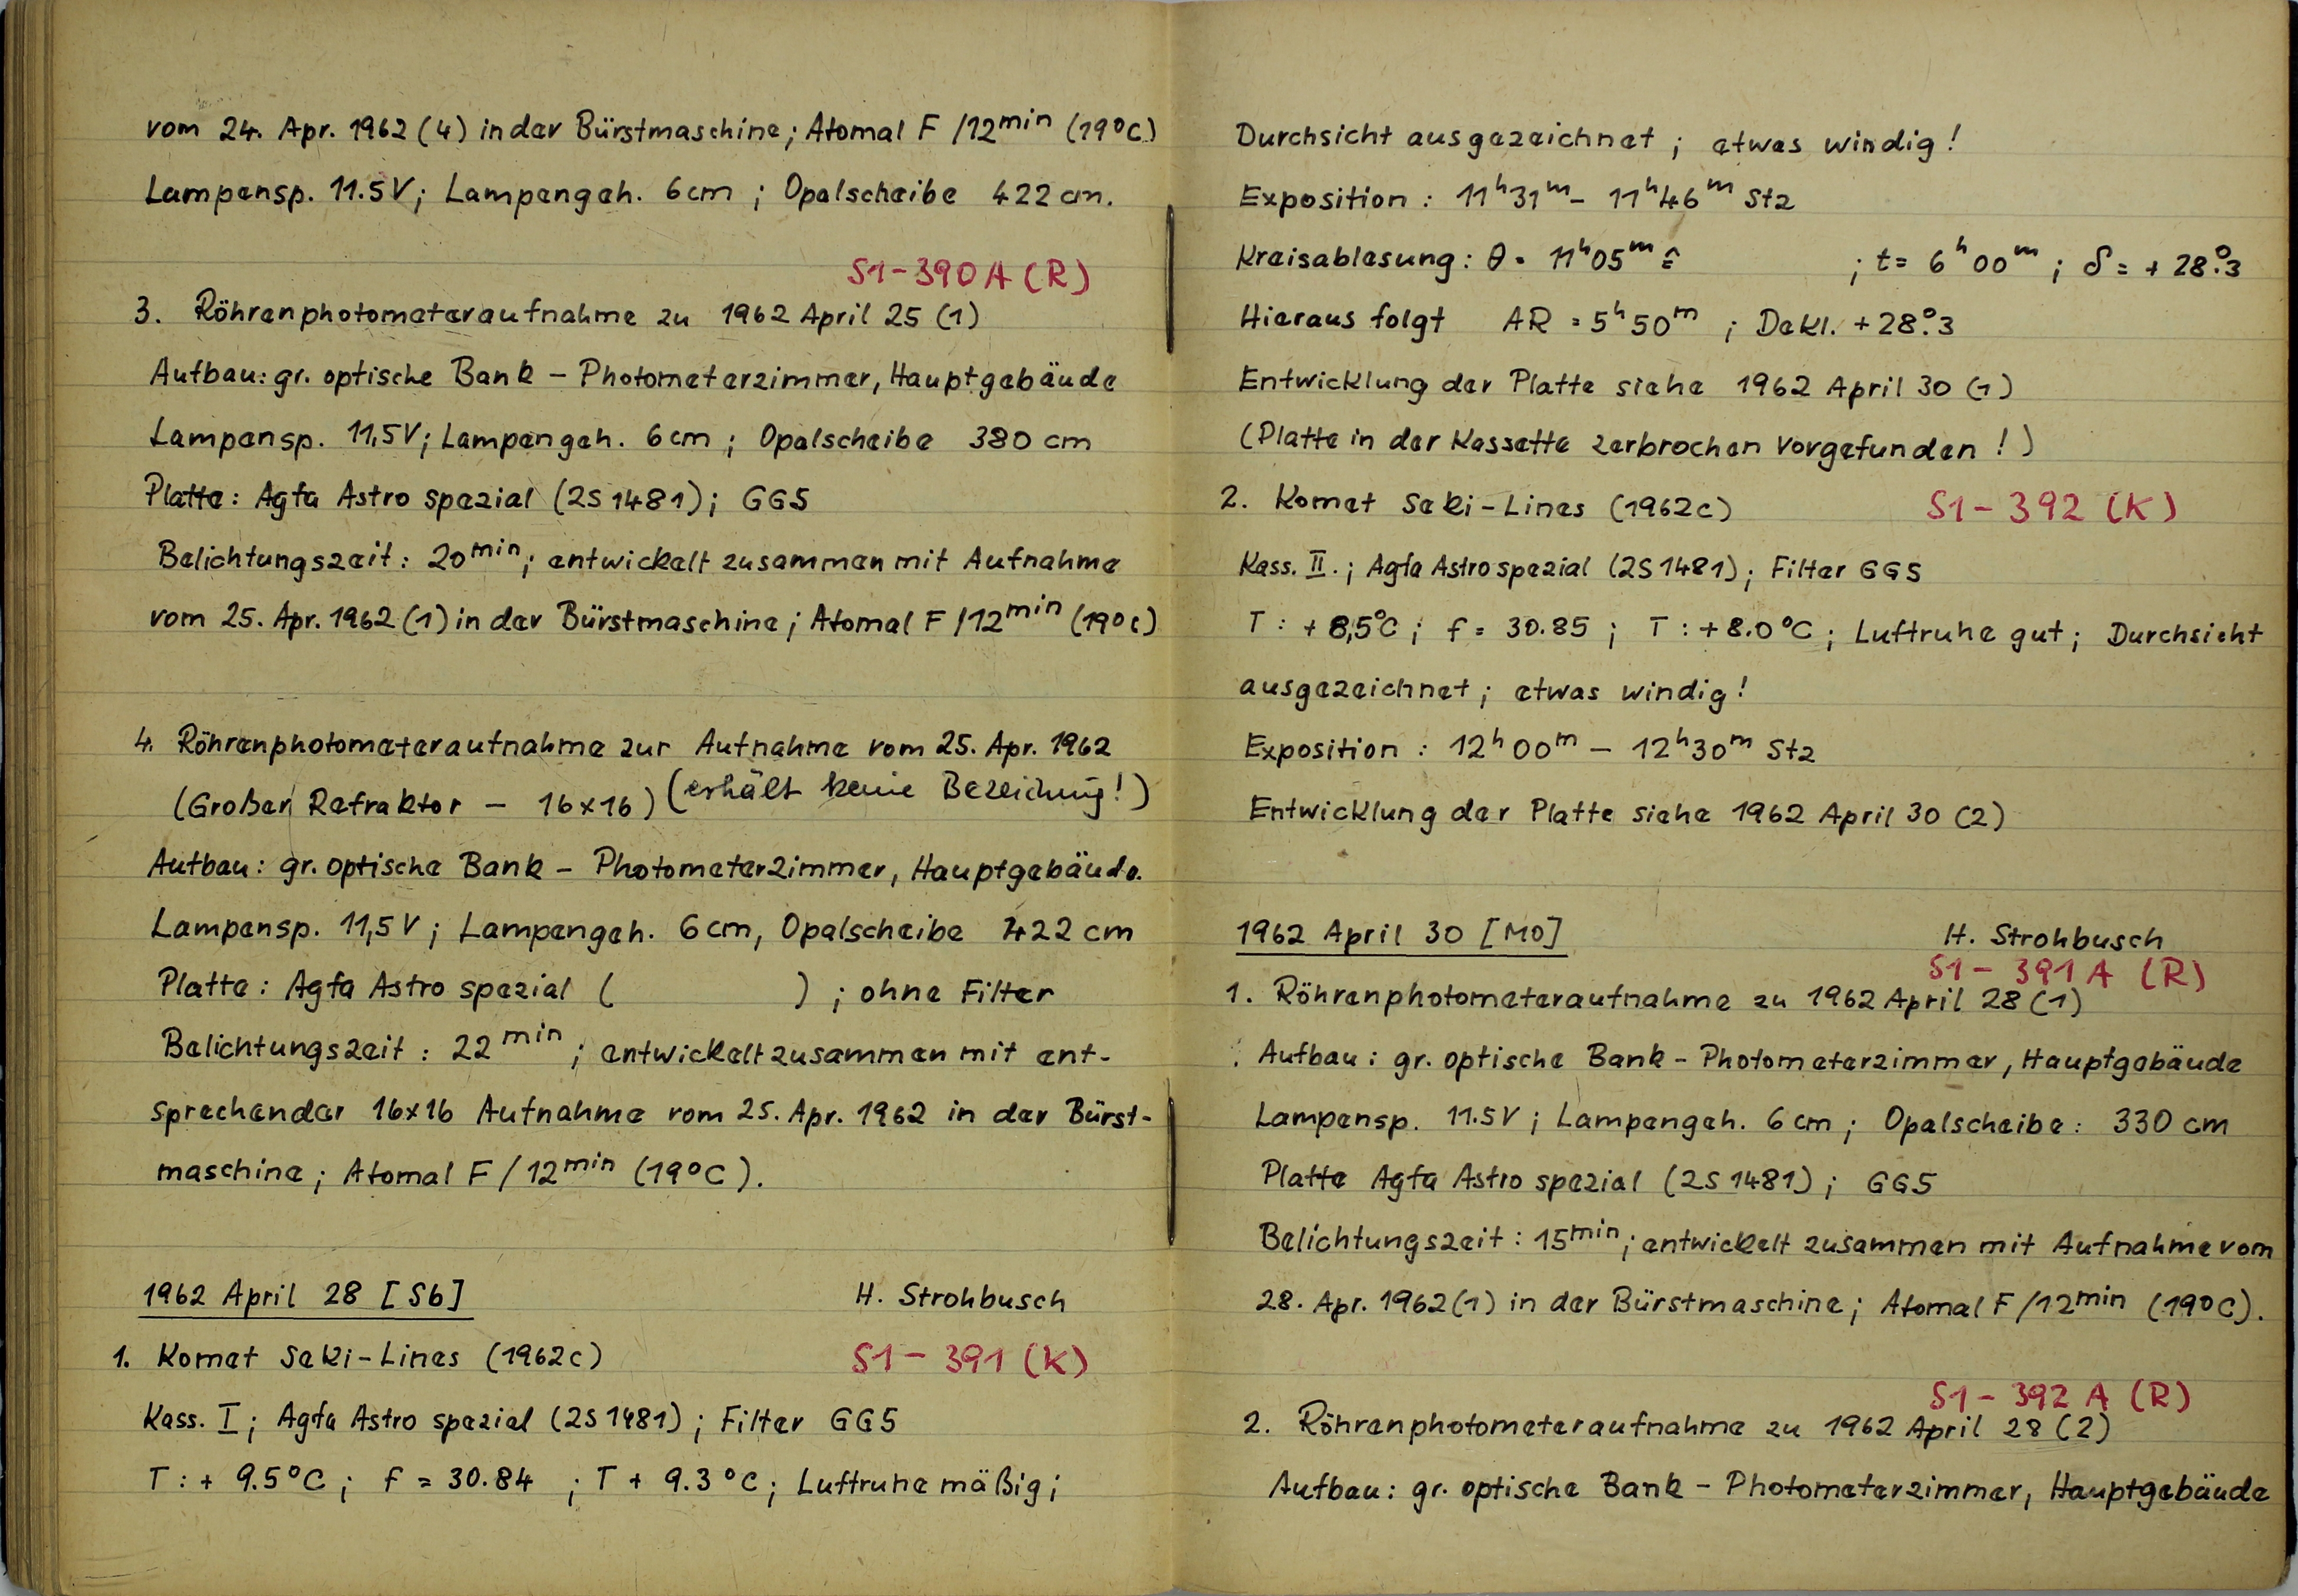 vom 24. Apr. 1962 (4) in der Bürstmaschine; Atomal F /12min (19°C)
Lampensp. 11.5V; Lampengeh. 6cm; Opalscheibe 422 cm.
S1-390A (R)
3. Röhrenphotometeraufnahme zu 1962 April 25 (1)
Aufbau: gr. optische Bank – Photometerzimmer, Hauptgebäude
Lampensp. 11,5V; Lampengeh. 6cm; Opalscheibe 380 cm
Platte: Agfa Astro spezial (2S1481); GG5
Belichtungszeit: 20min; entwickelt zusammen mit Aufnahme
vom 25. Apr. 1962 (1) in der Bürstmaschine; Atomal F /12min (19°C)
4. Röhrenphotometeraufnahme zur Aufnahme vom 25. Apr. 1962
(Großer Refraktor – 16x16) (erhält keine Bezeichung!)
Aufbau: gr. optische Bank – Photometerzimmer, Hauptgebäude.
Lampensp. 11,5V; Lampengeh. 6cm, Opalscheibe 422 cm
Platte: Agfa Astro spezial ( ); ohne Filter
Belichtungszeit: 22min; entwickelt zusammen mit ent-
sprechender 16x16 Aufnahme vom 25. Apr. 1962 in der Bürst-
maschine; Atomal F /12min (19°C).
1962 April 28 [Sb] H. Strohbusch
1. Komet Seki-Lines (1962c) S1 – 391 (K)
Kass. I; Agfa Astro spezial (2S1481); Filter GG5
T: + 9.5°C; f = 30.84; T + 9.3°C; Luftruhe mäßig;
Durchsicht ausgezeichnet; etwas windig!
Exposition: 11h31m – 11h46m Stz
Kreisablesung: θ = 11h05m ≙ ; t = 6h00m; δ = + 28°.3
Hieraus folgt AR = 5h50m; Dekl. +28°.3
Entwicklung der Platte siehe 1962 April 30 (1)
(Platte in der Kassette zerbrochen vorgefunden!)
2. Komet Seki-Lines (1962c) S1 – 392 (K)
Kass. II.; Agfa Astrospezial (2S1481); Filter GG5
T: + 8,5°C; f = 30.85; T: +8.0°C; Luftruhe gut; Durchsicht
ausgezeichnet; etwas windig!
Exposition: 12h00m – 12h30m Stz
Entwicklung der Platte siehe 1962 April 30 (2)
1962 April 30 [Mo] H. Strohbusch
S1 – 391 A (R)
1. Röhrenphotometeraufnahme zu 1962 April 28 (1)
Aufbau: gr. optische Bank – Photometerzimmer, Hauptgebäude
Lampensp. 11.5V; Lampengeh. 6cm; Opalscheibe: 330 cm
Platte Agfa Astro spezial (2S1481); GG5
Belichtungszeit: 15min; entwickelt zusammen mit Aufnahme vom
28. Apr. 1962 (1) in der Bürstmaschine; Atomal F /12min (19°C).
S1 – 392 A (R)
2. Röhrenphotometeraufnahme zu 1962 April 28 (2)
Aufbau: gr. optische Bank – Photometerzimmer, Hauptgebäude